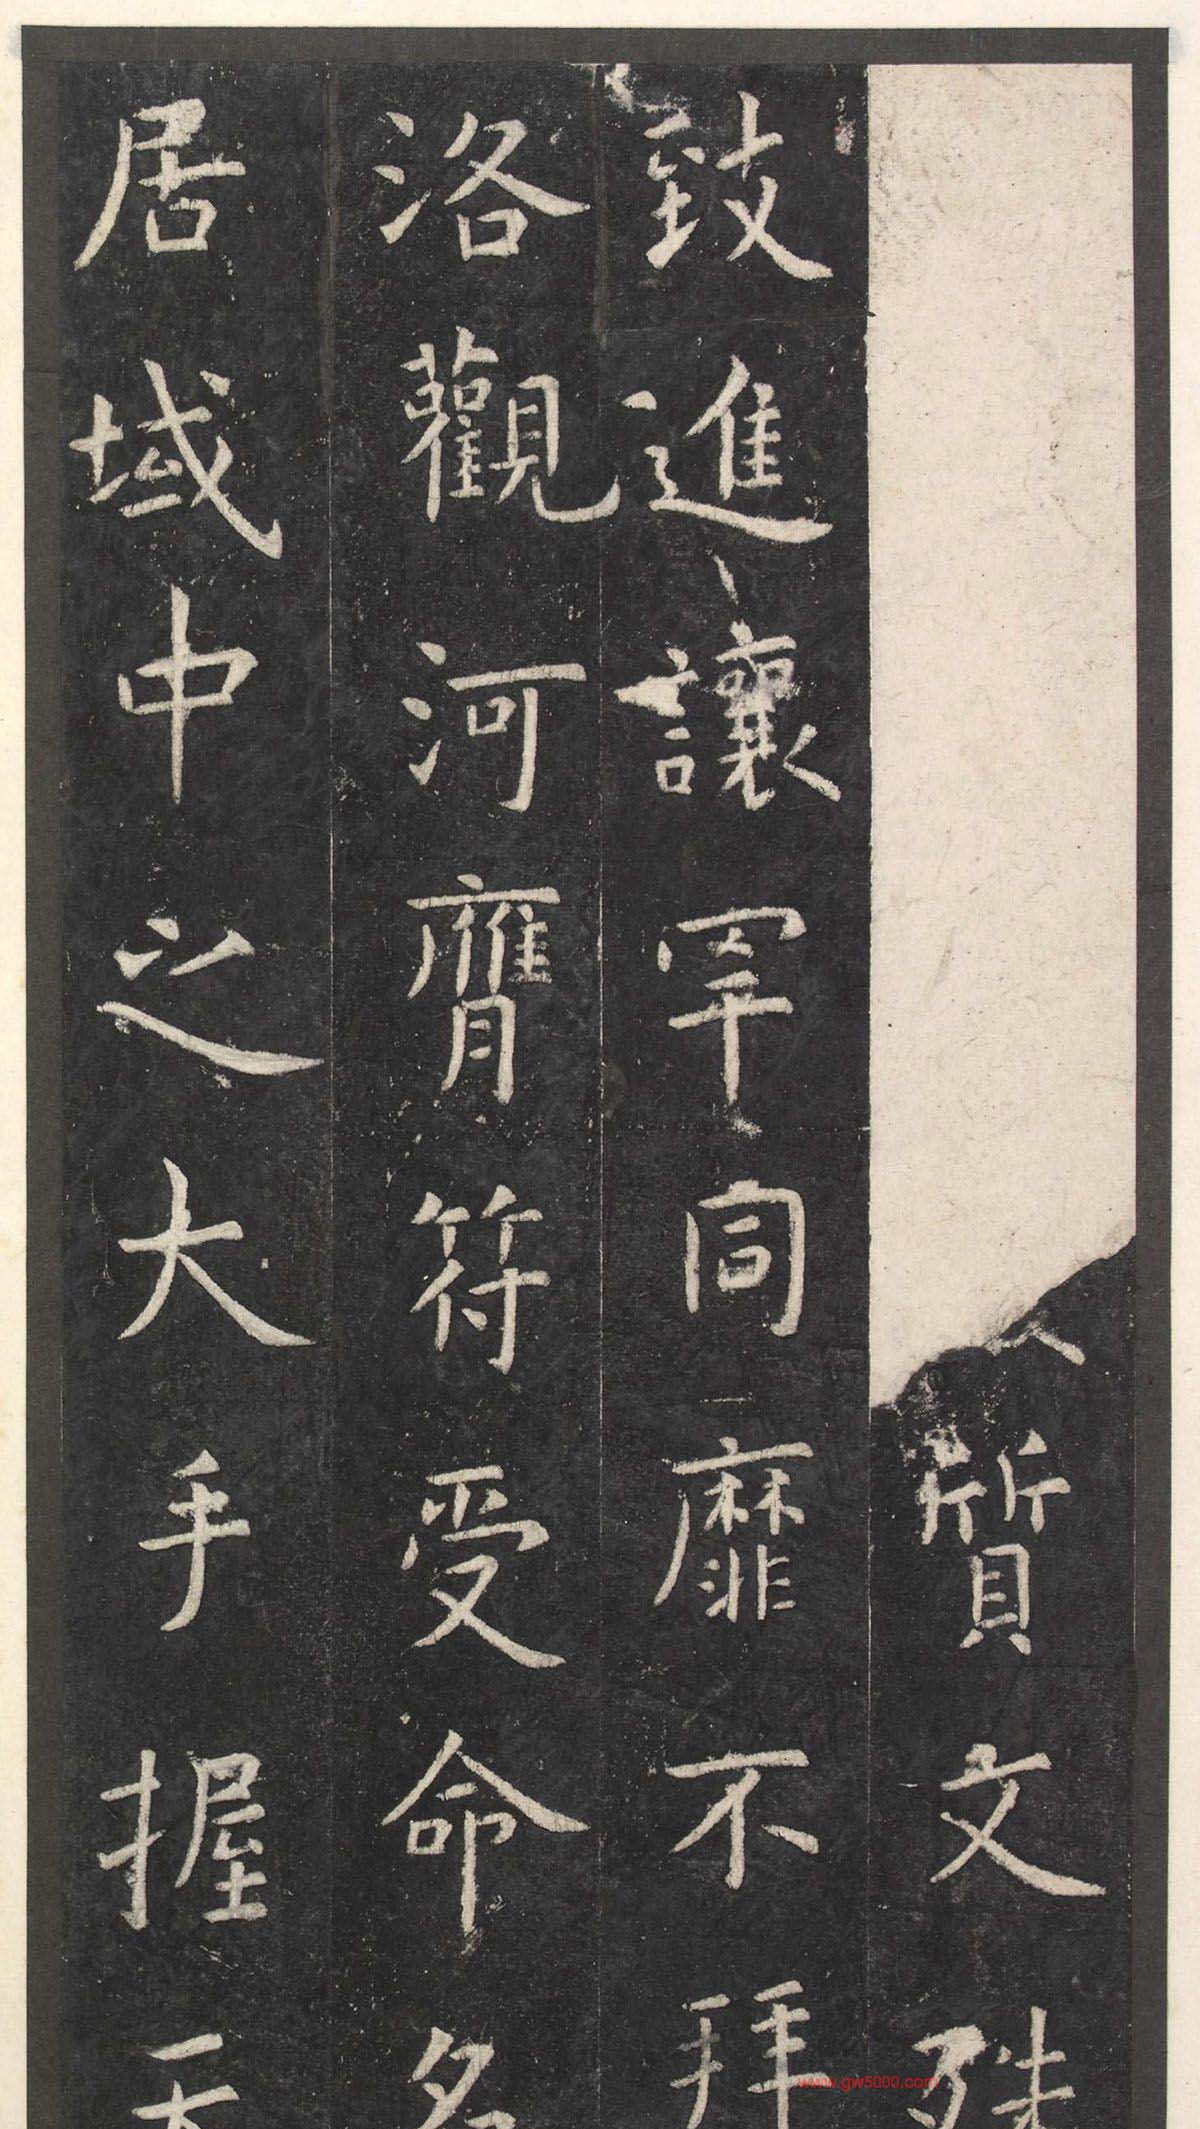 質文殊
致進讓罕同靡不拜
洛觀河膺符受命名
居域中之大手握天
www.gw5000.com